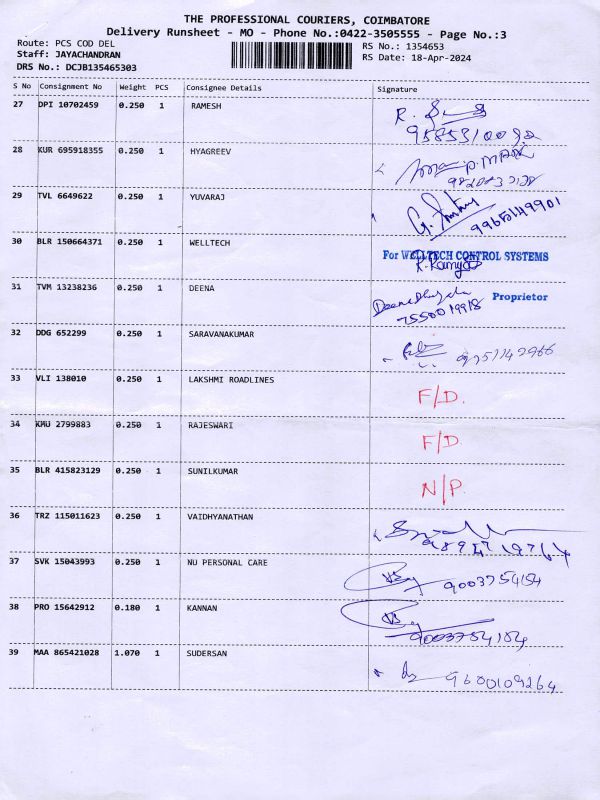 THE PROFESSIONAL COURIERS, COIMBATORE
Delivery Runsheet - MO - Phone No.:0422-3505555 - Page No.:3
Route: PCS COD DEL
RS No.: 1354653
Staff: JAYACHANDRAN
RS Date: 18-Apr-2024
DRS No.: DCJB135465303
S No Consignment No Weight PCS Consignee Details Signature
27 DPI 10702459 0.250 1 RAMESH
28 KUR 695918355 0.250 1 HYAGREEV
29 TVL 6649622 0.250 1 YUVARAJ
9965149901
30 BLR 150664371 0.250 1 WELLTECH
For WELLTECH CONTROL SYSTEMS
R. Ramya
Proprietor
31 TVM 13238236 0.250 1 DEENA
7550019918
32 DDG 652299 0.250 1 SARAVANAKUMAR
33 VLI 138010 0.250 1 LAKSHMI ROADLINES
F/D.
34 KMU 2799883 0.250 1 RAJESWARI
F/D.
35 BLR 415823129 0.250 1 SUNILKUMAR
N/P.
36 TRZ 115011623 0.250 1 VAIDHYANATHAN
37 SVK 15043993 0.250 1 NU PERSONAL CARE
9003754154
38 PRO 15642912 0.180 1 KANNAN
9003754154
39 MAA 865421028 1.070 1 SUDERSAN
9600109264